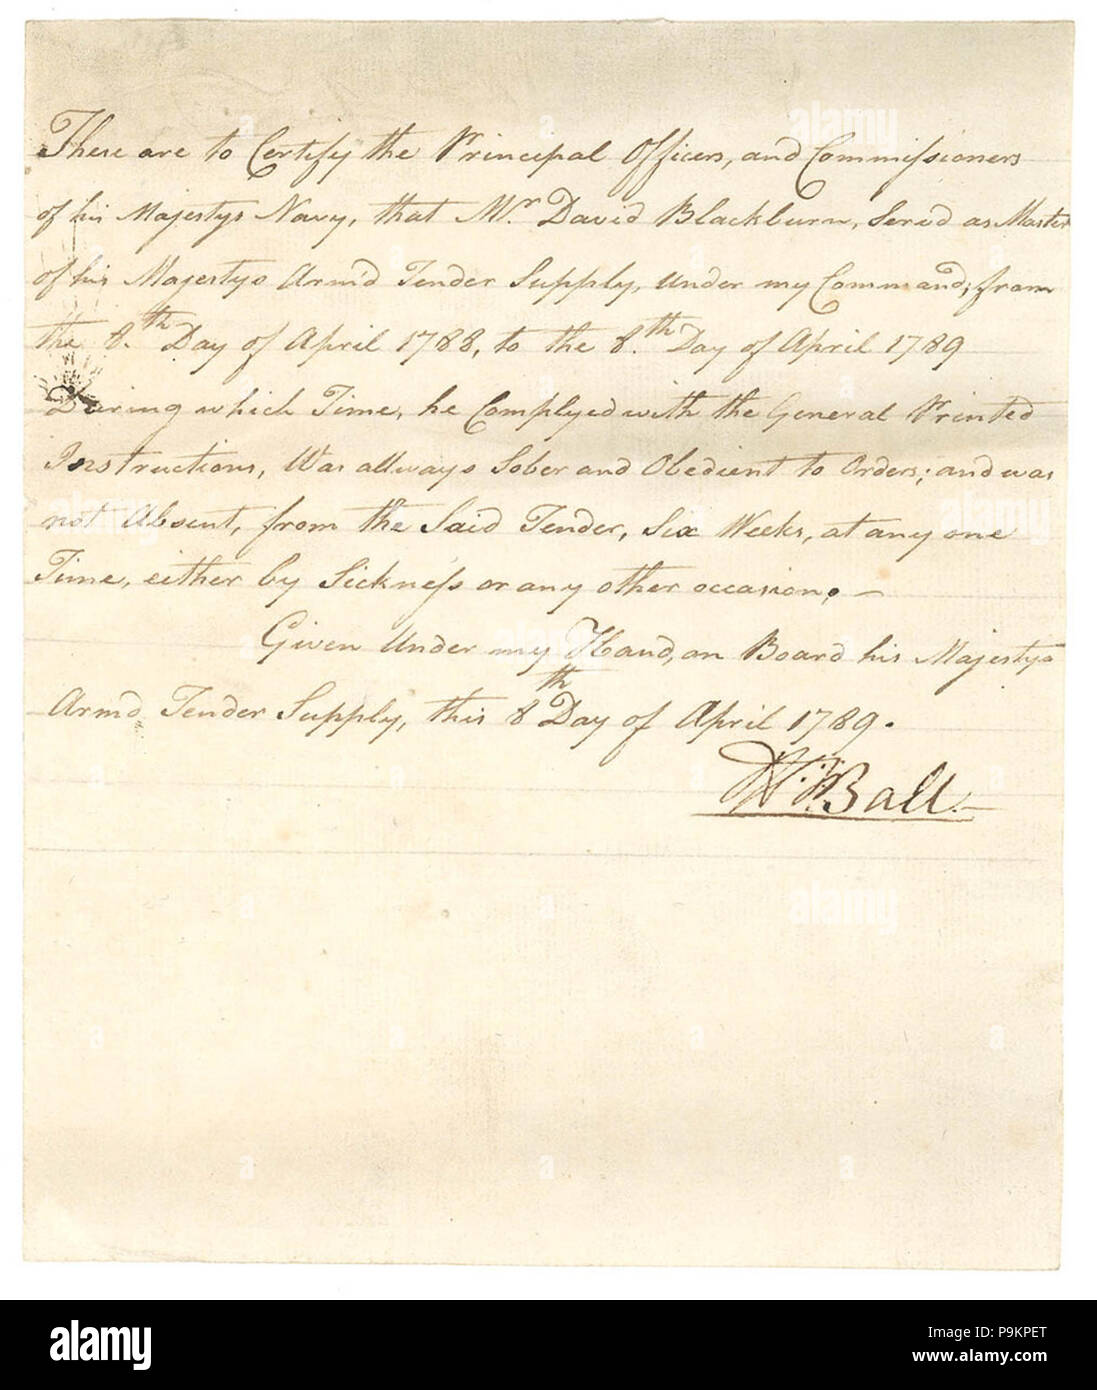 These are to Certify the Principal Officers, and Commissioners
of his Majestys Navy, that Mr. David Blackburn, Serv'd as Master
of his Majestys Arm'd Tender Supply, Under my Command, from
the 8.th Day of April 1788, to the 8.th Day of April 1789
During which Time, he Complyed with the General Printed
Instructions, Was allways Sober and Obedient to Orders; and was
not Absent, from the Said Tender, Six Weeks, at any one
Time, either by Sickness or any other occasion. —
Given Under my Hand, on Board his Majestys
Arm'd Tender Supply, this 8th Day of April 1789.
Ball.
alamy
Image ID: P9KPET
www.alamy.com